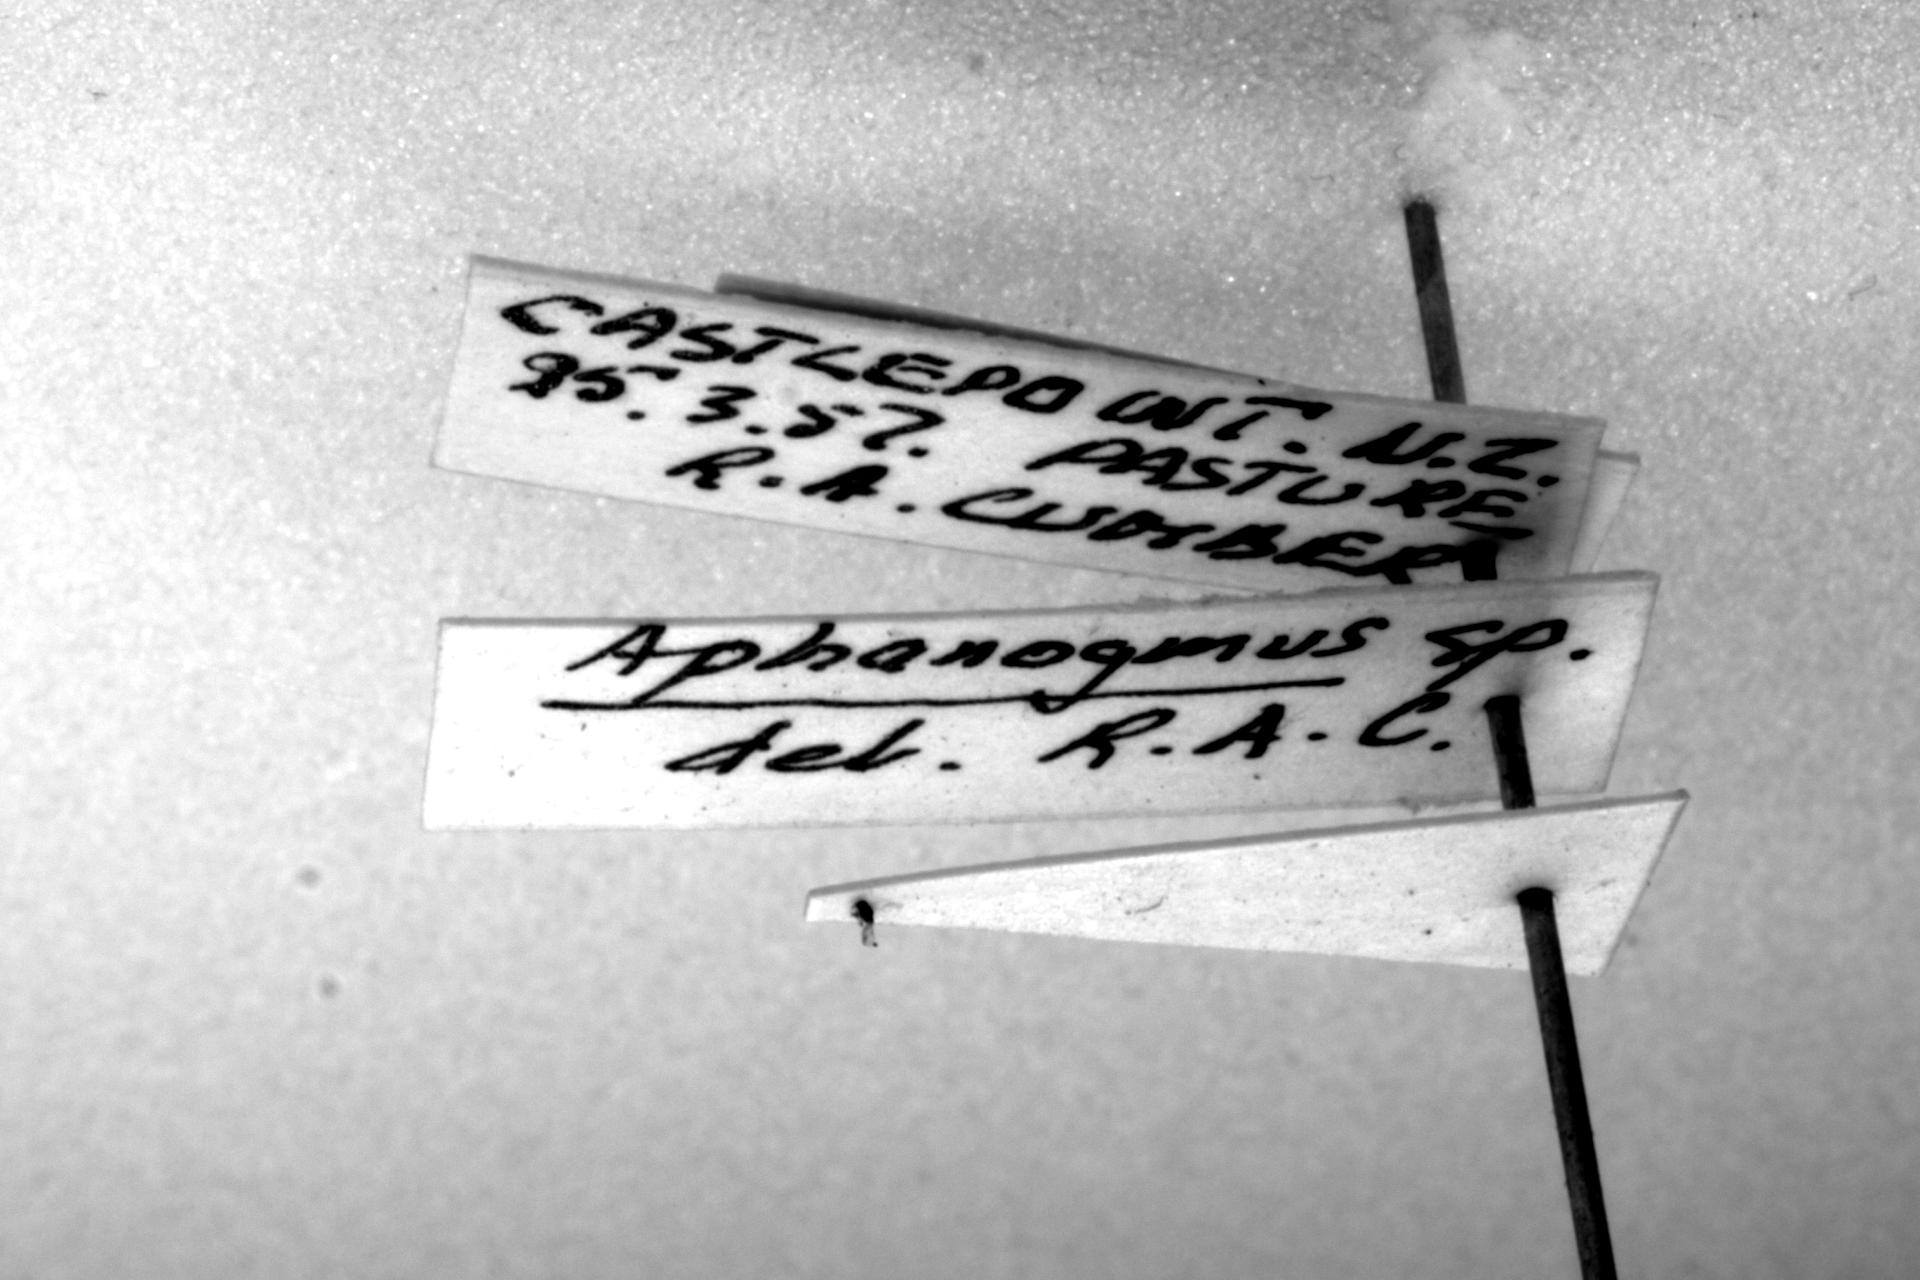 CASTLEPOINT. N.Z.
25.3.57. PASTURE
R.A. CUMBER
Aphanogmus sp.
det. R.A.C.